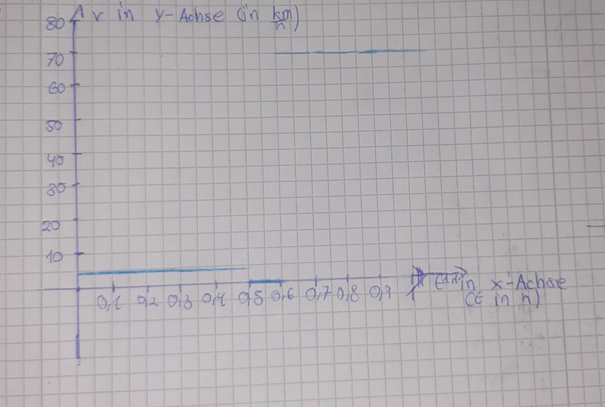 80 v in y-Achse (in km/h)
70
60
50
40
30
20
10
0,1 0,2 0,3 0,4 0,5 0,6 0,7 0,8 0,9 1 in x-Achse
(t in h)